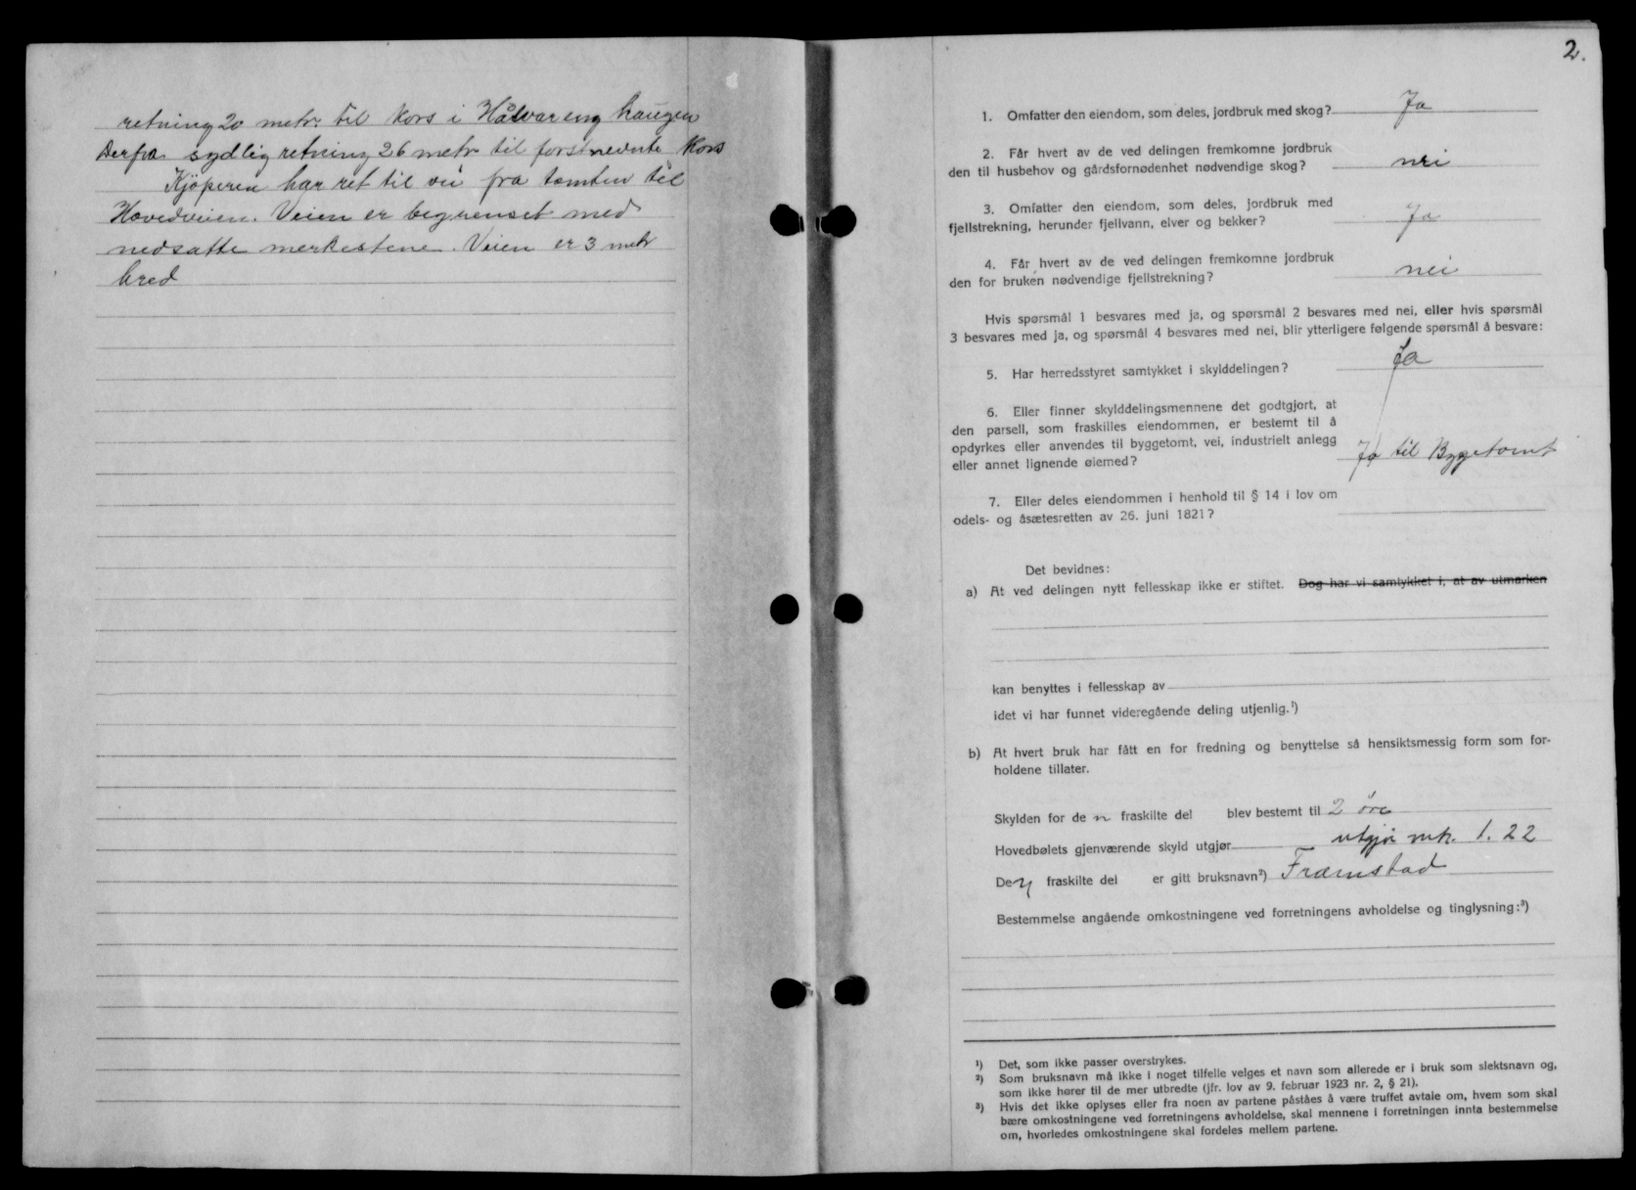 retning 20 metr til kors i Hålvareng haugen
Derfra sydlig retning 26 metr til forstnevnte kors
Kjöperen har ret til vei fra tomten til
Hovedveien. Veien er begrenset med
nedsatte merkestene. Veien er 3 metr
bred
2.
1. Omfatter den eiendom, som deles, jordbruk med skog? Ja
2. Får hvert av de ved delingen fremkomne jordbruk
den til husbehov og gårdsfornødenhet nødvendige skog? nei
3. Omfatter den eiendom, som deles, jordbruk med
fjellstrekning, herunder fjellvann, elver og bekker? Ja
4. Får hvert av de ved delingen fremkomne jordbruk
den for bruken nødvendige fjellstrekning? nei
Hvis spørsmål 1 besvares med ja, og spørsmål 2 besvares med nei, eller hvis spørsmål
3 besvares med ja, og spørsmål 4 besvares med nei, blir ytterligere følgende spørsmål å besvare:
5. Har herredsstyret samtykket i skylddelingen? Ja
6. Eller finner skylddelingsmennene det godtgjort, at
den parsell, som fraskilles eiendommen, er bestemt til å
opdyrkes eller anvendes til byggetomt, vei, industrielt anlegg
eller annet lignende øiemed? Ja til Byggetomt
7. Eller deles eiendommen i henhold til § 14 i lov om
odels- og åsætesretten av 26. juni 1821?
Det bevidnes:
a) At ved delingen nytt fellesskap ikke er stiftet. Dog har vi samtykket i, at av utmarken
kan benyttes i fellesskap av
idet vi har funnet videregående deling utjenlig.¹)
b) At hvert bruk har fått en for fredning og benyttelse så hensiktsmessig form som for-
holdene tillater.
Skylden for de n fraskilte del blev bestemt til 2 öre
Hovedbølets gjenværende skyld utgjør utgjör mk. 1. 22
De n fraskilte del er gitt bruksnavn²) Framstad
Bestemmelse angående omkostningene ved forretningens avholdelse og tinglysning:³)
¹) Det, som ikke passer overstrykes.
²) Som bruksnavn må ikke i noget tilfelle velges et navn som allerede er i bruk som slektsnavn og,
som ikke hører til de mer utbredte (jfr. lov av 9. februar 1923 nr. 2, § 21).
³) Hvis det ikke oplyses eller fra noen av partene påståes å være truffet avtale om, hvem som skal
bære omkostningene ved forretningens avholdelse, skal mennene i forretningen innta bestemmelse
om, hvorledes omkostningene skal fordeles mellem partene.